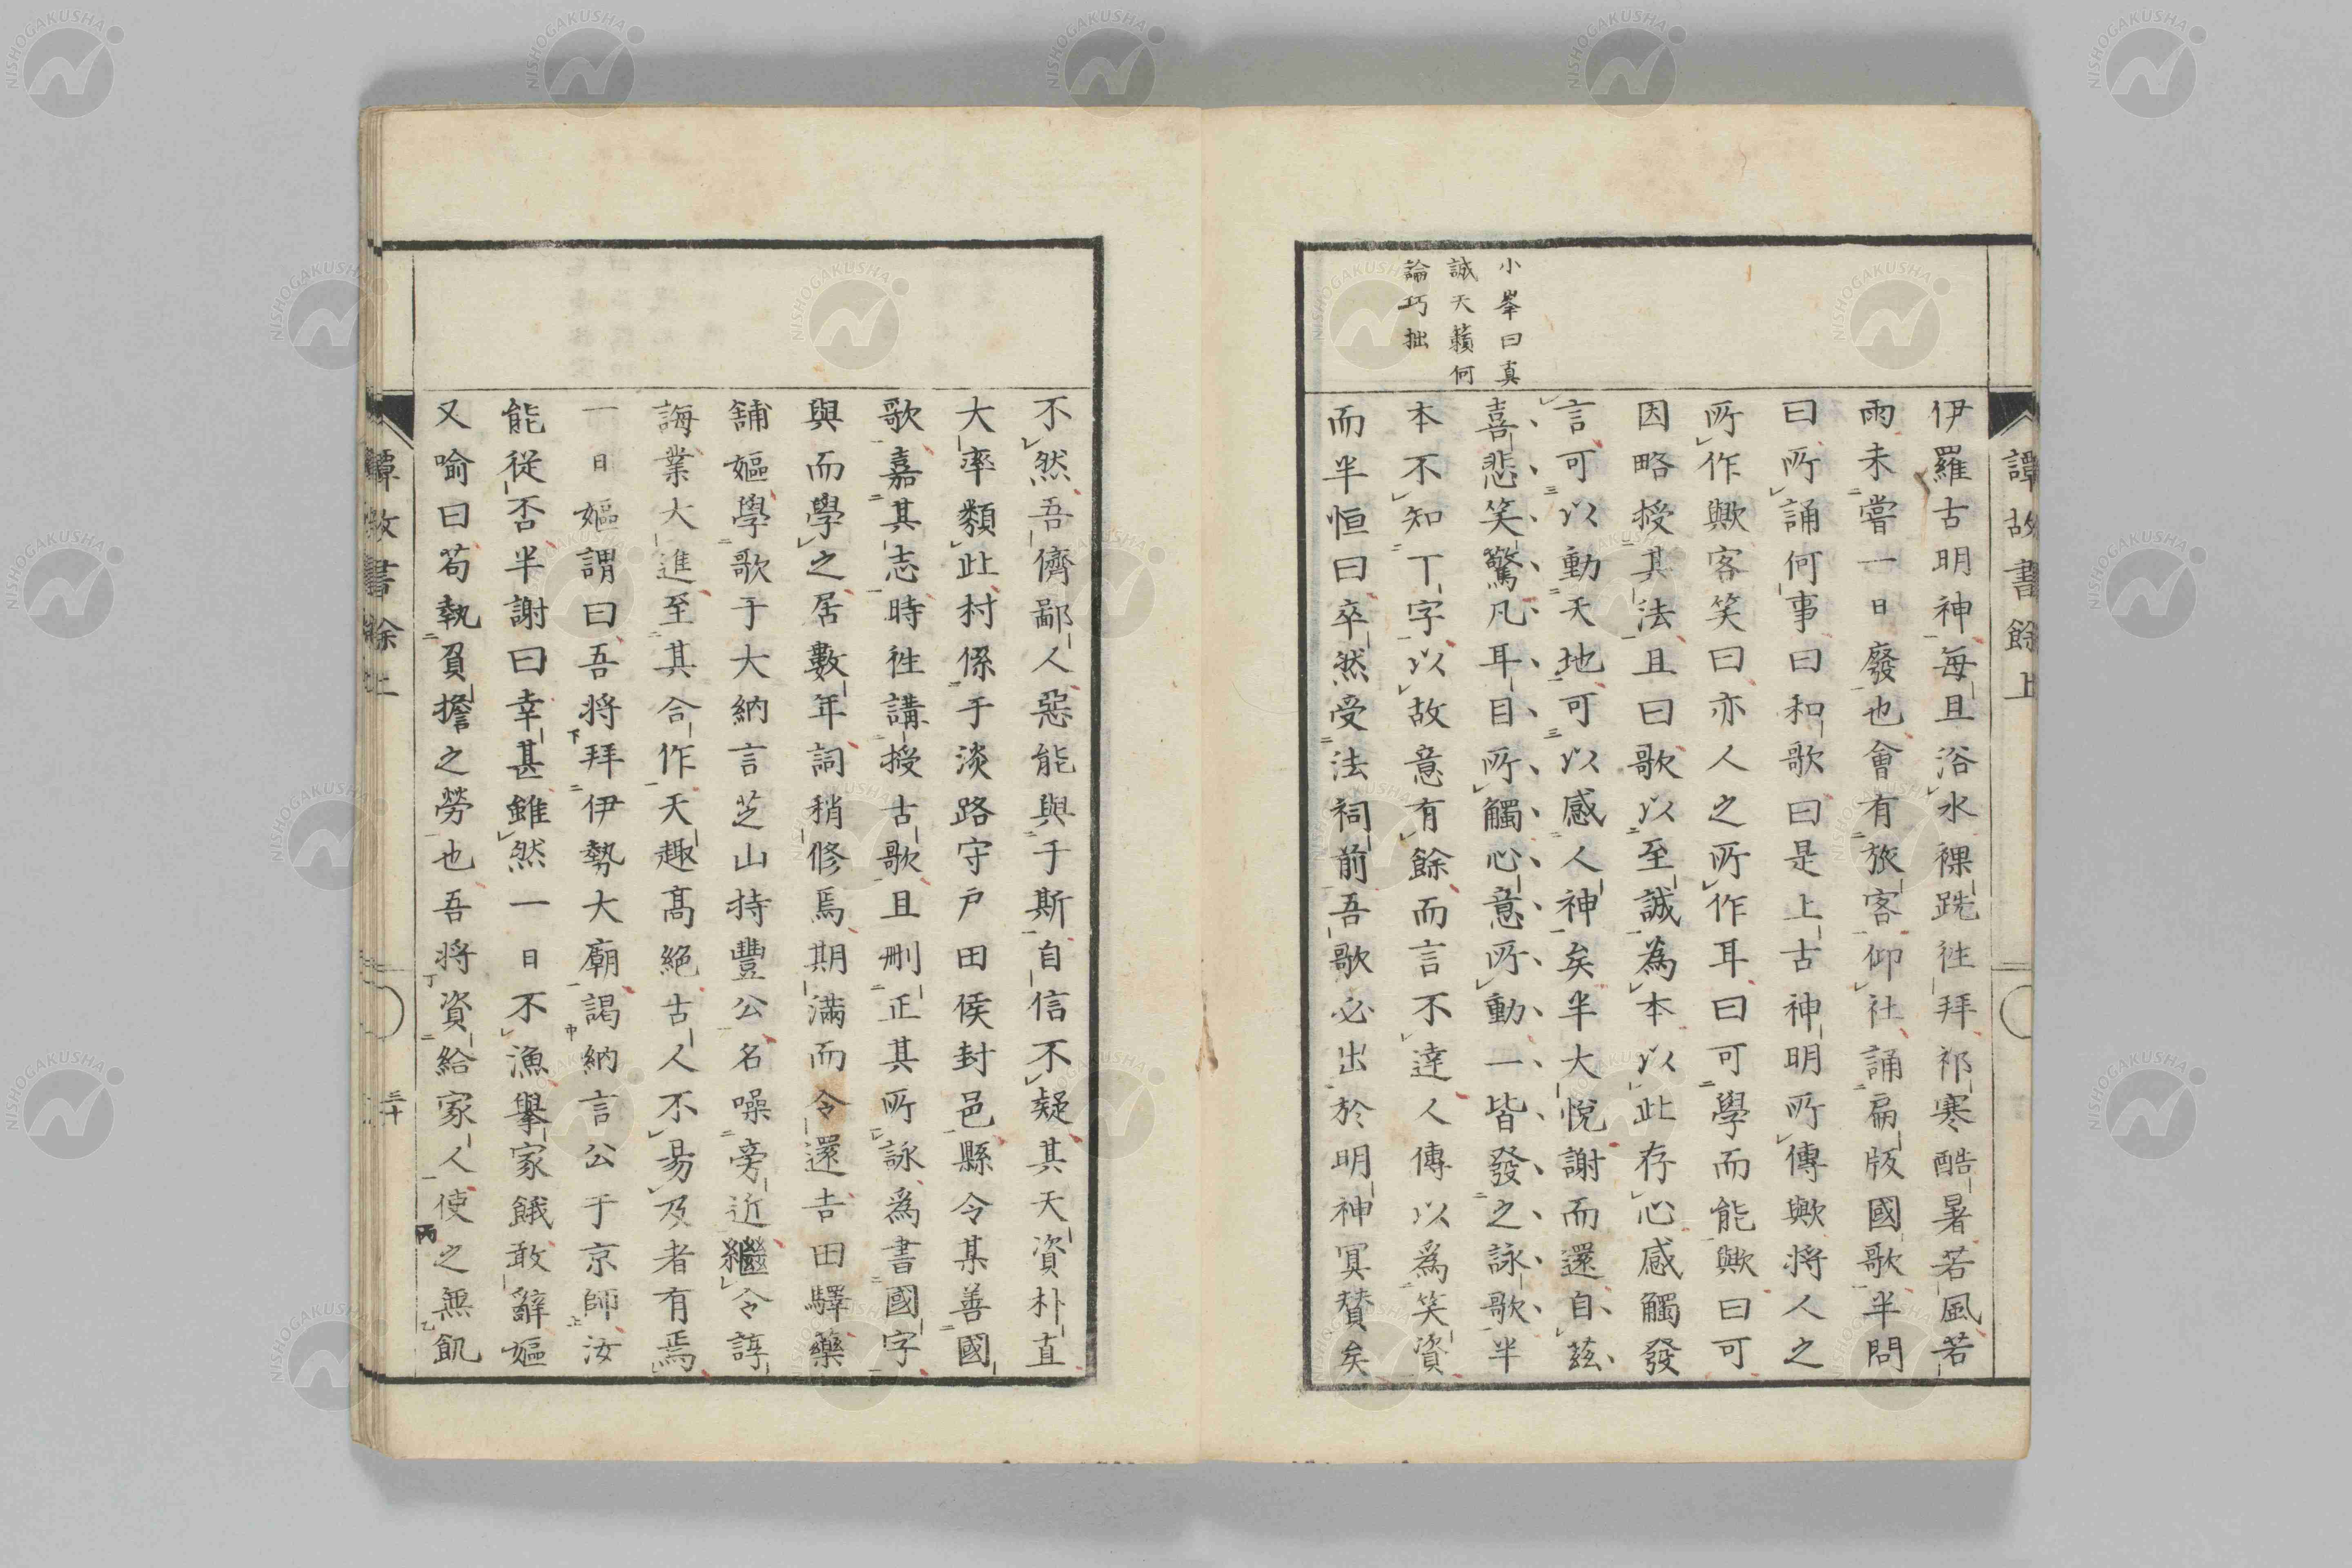 譚故書餘上
伊羅古明神每旦浴水裸跣徃拜祁寒酷暑若風若
雨未嘗一日廢也會有旅客仰社誦扁版國歌半問
曰所誦何事曰和歌曰是上古神明所傳歟將人之
所作歟客笑曰亦人之所作耳曰可學而能歟曰可
因略授其法且曰歌以至誠為本以此存心感觸發
言可以動天地可以感人神矣半大悅謝而還自茲
喜悲笑驚凡耳目所觸心意所動一皆發之詠歌半
本不知丁字以故意有餘而言不達人傳以爲笑資
而半恒曰卒然受法祠前吾歌必出於明神冥賛矣
小峯曰真
誠天籟何
論巧拙
不然吾儕鄙人惡能與于斯自信不疑其天資朴直
大率類此村係于淡路守戶田侯封邑縣令某善國
歌嘉其志時徃講授古歌且刪正其所詠爲書國字
與而學之居數年詞稍修焉期滿而令還吉田驛藥
舖嫗學歌于大納言芝山持豐公名噪旁近繼令諄
誨業大進至其合作天趣高絕古人不易及者有焉
一日嫗謂曰吾將拜伊勢大廟謁納言公于京師汝
能從否半謝曰幸甚雖然一日不漁擧家餓敢辭嫗
又喻曰苟執負擔之勞也吾將資給家人使之無飢
譚故書餘上
三十
NISHOGAKUSHA